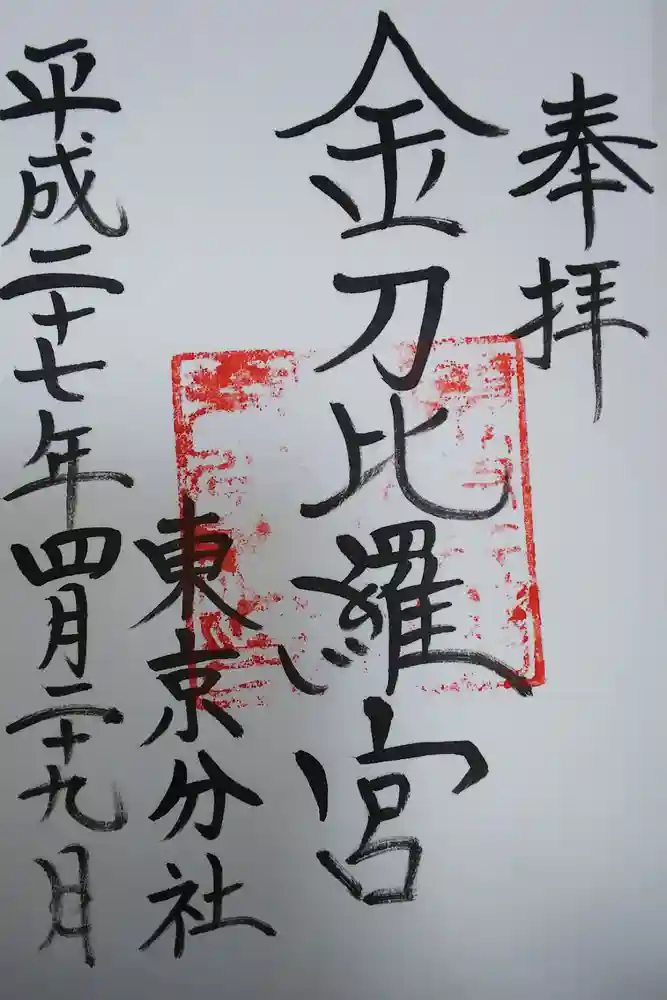 奉拝
金刀比羅宮
東京分社
平成二十七年四月二十九日